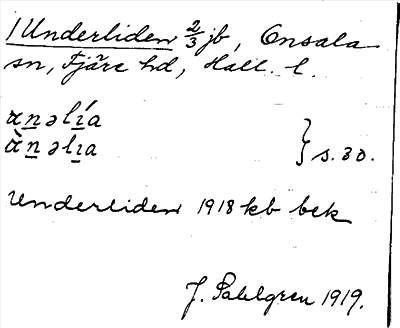 / Underliden 2/3 jb, Onsala
sn, Fjäre hd, Hall. l.
ɑnəlía
ɑ̀nəlia } s. 30.
Underliden 1918 kb bek
J. Sahlgren 1919.